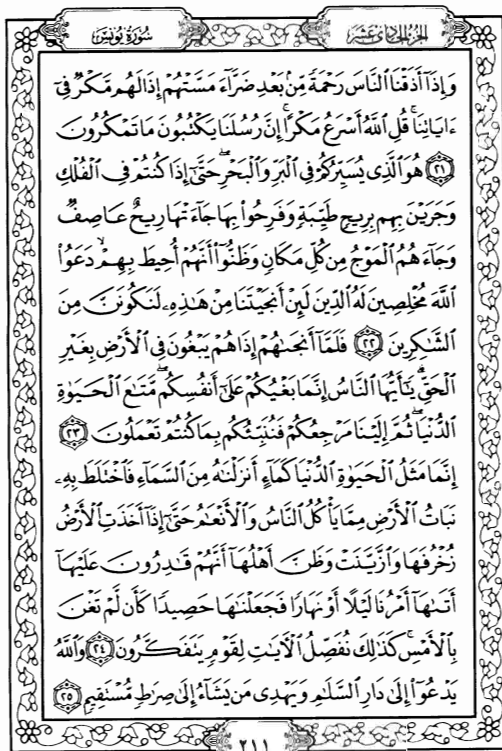 سُورَةُ يُونُسَ
الجُزْءُ الحَادِي عَشَرَ
وَإِذَآ أَذَقْنَا ٱلنَّاسَ رَحْمَةً مِّنۢ بَعْدِ ضَرَّآءَ مَسَّتْهُمْ إِذَا لَهُم مَّكْرٌ فِىٓ
ءَايَاتِنَا ۚ قُلِ ٱللَّهُ أَسْرَعُ مَكْرًا ۚ إِنَّ رُسُلَنَا يَكْتُبُونَ مَا تَمْكُرُونَ
۝٢١ هُوَ ٱلَّذِى يُسَيِّرُكُمْ فِى ٱلْبَرِّ وَٱلْبَحْرِ ۖ حَتَّىٰٓ إِذَا كُنتُمْ فِى ٱلْفُلْكِ
وَجَرَيْنَ بِهِم بِرِيحٍ طَيِّبَةٍ وَفَرِحُوا۟ بِهَا جَآءَتْهَا رِيحٌ عَاصِفٌ
وَجَآءَهُمُ ٱلْمَوْجُ مِن كُلِّ مَكَانٍ وَظَنُّوٓا۟ أَنَّهُمْ أُحِيطَ بِهِمْ ۙ دَعَوُا۟
ٱللَّهَ مُخْلِصِينَ لَهُ ٱلدِّينَ لَئِنْ أَنجَيْتَنَا مِنْ هَٰذِهِۦ لَنَكُونَنَّ مِنَ
ٱلشَّٰكِرِينَ ۝٢٢ فَلَمَّآ أَنجَىٰهُمْ إِذَا هُمْ يَبْغُونَ فِى ٱلْأَرْضِ بِغَيْرِ
ٱلْحَقِّ ۗ يَٰٓأَيُّهَا ٱلنَّاسُ إِنَّمَا بَغْيُكُمْ عَلَىٰٓ أَنفُسِكُم ۖ مَّتَٰعَ ٱلْحَيَوٰةِ
ٱلدُّنْيَا ۖ ثُمَّ إِلَيْنَا مَرْجِعُكُمْ فَنُنَبِّئُكُم بِمَا كُنتُمْ تَعْمَلُونَ ۝٢٣
إِنَّمَا مَثَلُ ٱلْحَيَوٰةِ ٱلدُّنْيَا كَمَآءٍ أَنزَلْنَٰهُ مِنَ ٱلسَّمَآءِ فَٱخْتَلَطَ بِهِۦ
نَبَاتُ ٱلْأَرْضِ مِمَّا يَأْكُلُ ٱلنَّاسُ وَٱلْأَنْعَٰمُ حَتَّىٰٓ إِذَآ أَخَذَتِ ٱلْأَرْضُ
زُخْرُفَهَا وَٱزَّيَّنَتْ وَظَنَّ أَهْلُهَآ أَنَّهُمْ قَٰدِرُونَ عَلَيْهَآ
أَتَىٰهَآ أَمْرُنَا لَيْلًا أَوْ نَهَارًا فَجَعَلْنَٰهَا حَصِيدًا كَأَن لَّمْ تَغْنَ
بِٱلْأَمْسِ ۚ كَذَٰلِكَ نُفَصِّلُ ٱلْءَايَٰتِ لِقَوْمٍ يَتَفَكَّرُونَ ۝٢٤ وَٱللَّهُ
يَدْعُوٓا۟ إِلَىٰ دَارِ ٱلسَّلَٰمِ وَيَهْدِى مَن يَشَآءُ إِلَىٰ صِرَٰطٍ مُّسْتَقِيمٍ ۝٢٥
٢١١